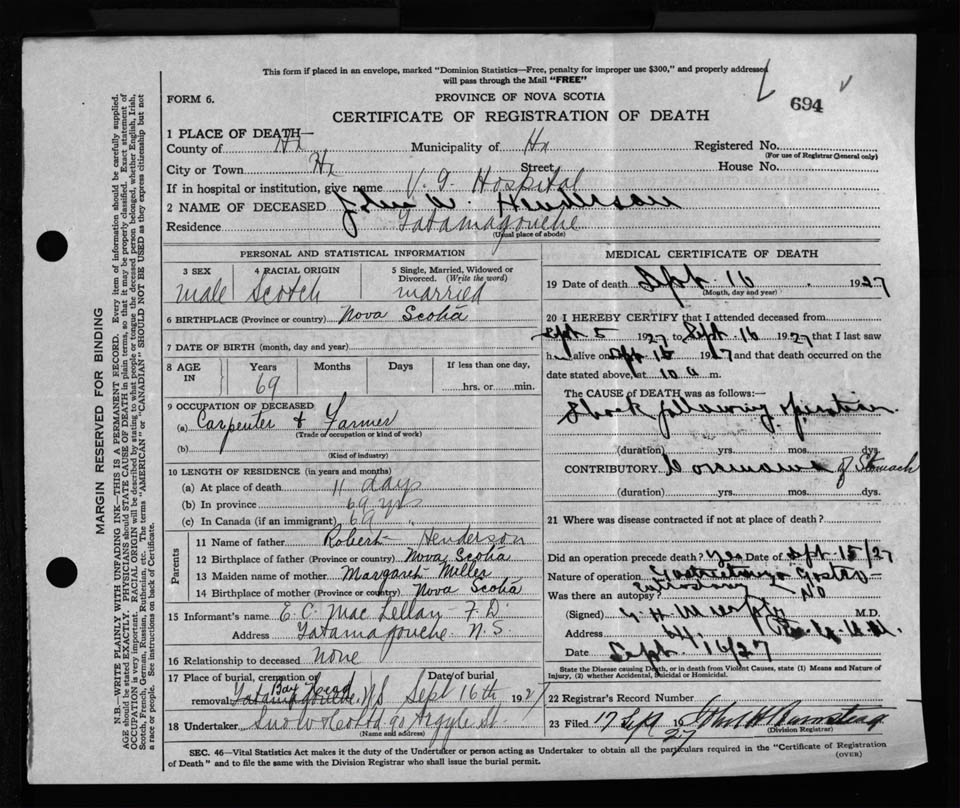 This form if placed in an envelope, marked "Dominion Statistics—Free, penalty for improper use $300," and properly addressed
will pass through the Mail "FREE"
694
FORM 6.
PROVINCE OF NOVA SCOTIA
CERTIFICATE OF REGISTRATION OF DEATH
MARGIN RESERVED FOR BINDING
N.B.—WRITE PLAINLY WITH UNFADING INK—THIS IS A PERMANENT RECORD. Every item of information should be carefully supplied.
AGE should be stated EXACTLY. PHYSICIANS should STATE CAUSE OF DEATH in plain terms, so that it may be properly classified. Exact statement of
OCCUPATION is very important. RACIAL ORIGIN will be described by stating to what people or tongue the deceased person belonged, whether English, Irish,
Scotch, French, German, Russian, Ruthenian, etc. The terms "AMERICAN" or "CANADIAN" SHOULD NOT BE USED as they express citizenship but not
a race or people. See instructions on back of Certificate.
1 PLACE OF DEATH—
County of Hx Municipality of Hx Registered No.
(For use of Registrar General only)
City or Town Hx Street House No.
If in hospital or institution, give name V. G. Hospital
2 NAME OF DECEASED John W. Henderson
Residence Tatamagouche
(Usual place of abode)
PERSONAL AND STATISTICAL INFORMATION
3 SEX 4 RACIAL ORIGIN 5 Single, Married, Widowed or
Divorced. (Write the word)
male Scotch married
6 BIRTHPLACE (Province or country) Nova Scotia
7 DATE OF BIRTH (month, day and year)
8 AGE IN Years Months Days If less than one day,
69 hrs. or min.
9 OCCUPATION OF DECEASED
(a) Carpenter & Farmer
(Trade or occupation or kind of work)
(b)
(Kind of industry)
10 LENGTH OF RESIDENCE (in years and months)
(a) At place of death 11 days
(b) In province 69 yrs
(c) In Canada (if an immigrant) 69 "
Parents
11 Name of father Robert Henderson
12 Birthplace of father (Province or country) Nova Scotia
13 Maiden name of mother Margaret Miller
14 Birthplace of mother (Province or country) Nova Scotia
15 Informant's name E. C. MacLellan F. D.
Address Tatamagouche N. S.
16 Relationship to deceased none
17 Place of burial, cremation or Date of burial
removal Tatamagouche, NS Sept 16th 1927
18 Undertaker Snow & Co Ltd 90 Argyle St.
(Name and address)
MEDICAL CERTIFICATE OF DEATH
19 Date of death Sept. 16 1927
(Month, day and year)
20 I HEREBY CERTIFY that I attended deceased from
Sept 5 1927 to Sept. 16 1927 that I last saw
him alive on Sept 15 1927 and that death occurred on the
date stated above, at 10 a m.
The CAUSE OF DEATH was as follows:
Shock following operation.
(duration) yrs. mos. dys.
CONTRIBUTORY of Stomach
(duration) yrs. mos. dys.
21 Where was disease contracted if not at place of death?
Did an operation precede death? Yes Date of Sept. 15/27
Nature of operation
Was there an autopsy? No
(Signed) M.D.
Address
Date Sept. 16/27
State the Disease causing Death, or in death from Violent Causes, state (1) Means and Nature of
Injury, (2) whether Accidental, Suicidal or Homicidal.
22 Registrar's Record Number
23 Filed 17 Sept 1927
(Division Registrar)
SEC. 46—Vital Statistics Act makes it the duty of the Undertaker or person acting as Undertaker to obtain all the particulars required in the "Certificate of Registration
of Death" and to file the same with the Division Registrar who shall issue the burial permit.
(OVER)